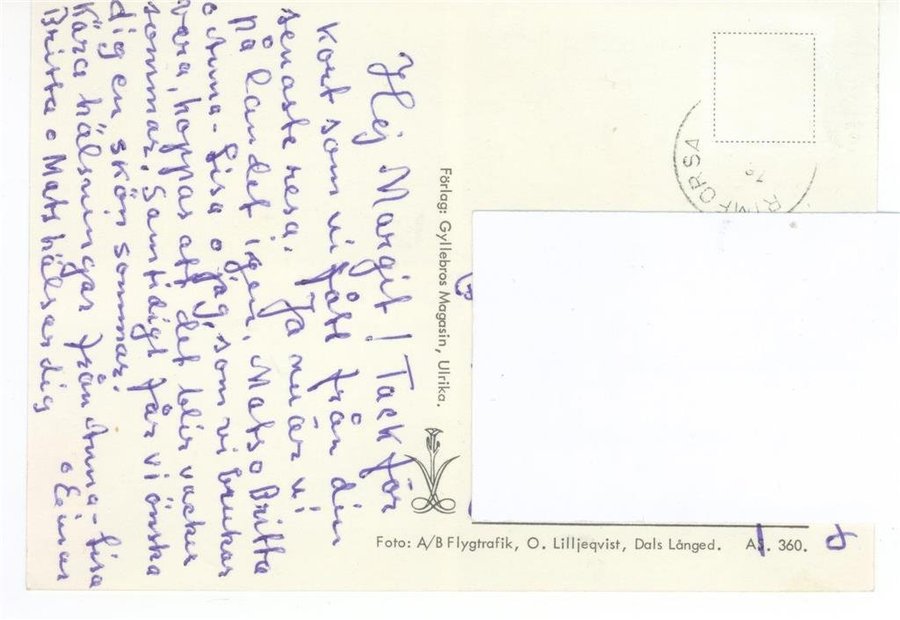 Hej Margit! Tack för
kort som vi fått från din
senaste resa. Ja nu är vi
på landet igen. Mats o Britta
o Anna-Lisa o jag, som vi brukar
vara, hoppas att det blir vacker
sommar. Samtidigt får vi önska
dig en skön sommar.
Kära hälsningar från Anna-Lisa
o Einar
Britta o Mats hälsar dig
Förlag: Gyllebros Magasin, Ulrika.
RIMFORSA
Foto: A/B Flygtrafik, O. Lilljeqvist, Dals Långed. AS. 360.